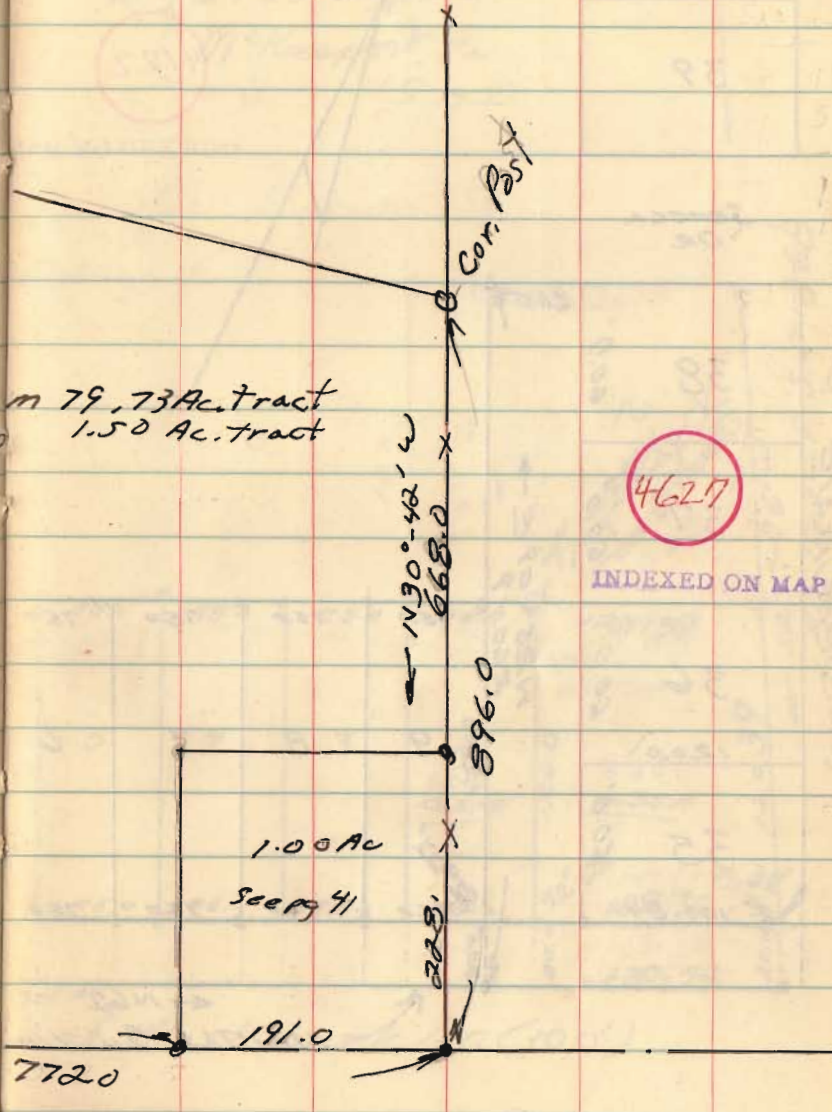 Cor. Post
m 79.73 Ac. tract
1.50 Ac. tract
N30°-42' W
668.0
4627
INDEXED ON MAP
896.0
1.00 Ac
See pg 41
228.
191.0
7720